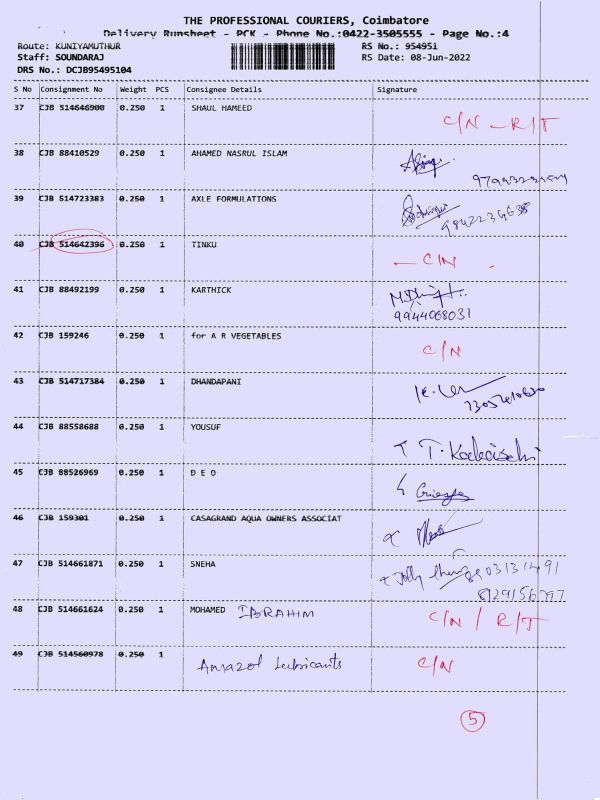 THE PROFESSIONAL COURIERS, Coimbatore
Delivery Runsheet - PCK - Phone No.:0422-3505555 - Page No.:4
Route: KUNIYAMUTHUR RS No.: 954951
Staff: SOUNDARAJ RS Date: 08-Jun-2022
DRS No.: DCJB95495104
S No Consignment No Weight PCS Consignee Details Signature
37 CJB 514646900 0.250 1 SHAUL HAMEED C/N - R/T
38 CJB 88410529 0.250 1 AHAMED NASRUL ISLAM
39 CJB 514723383 0.250 1 AXLE FORMULATIONS
9842234638
40 CJB 514642396 0.250 1 TINKU - C/N
41 CJB 88492199 0.250 1 KARTHICK
9944068031
42 CJB 159246 0.250 1 for A R VEGETABLES C/N
43 CJB 514717384 0.250 1 DHANDAPANI
44 CJB 88558688 0.250 1 YOUSUF
45 CJB 88526969 0.250 1 D E O
46 CJB 159301 0.250 1 CASAGRAND AQUA OWNERS ASSOCIAT
47 CJB 514661871 0.250 1 SNEHA
48 CJB 514661624 0.250 1 MOHAMED IBRAHIM C/N / R/T
49 CJB 514560978 0.250 1 Amazol Lubricants C/N
5